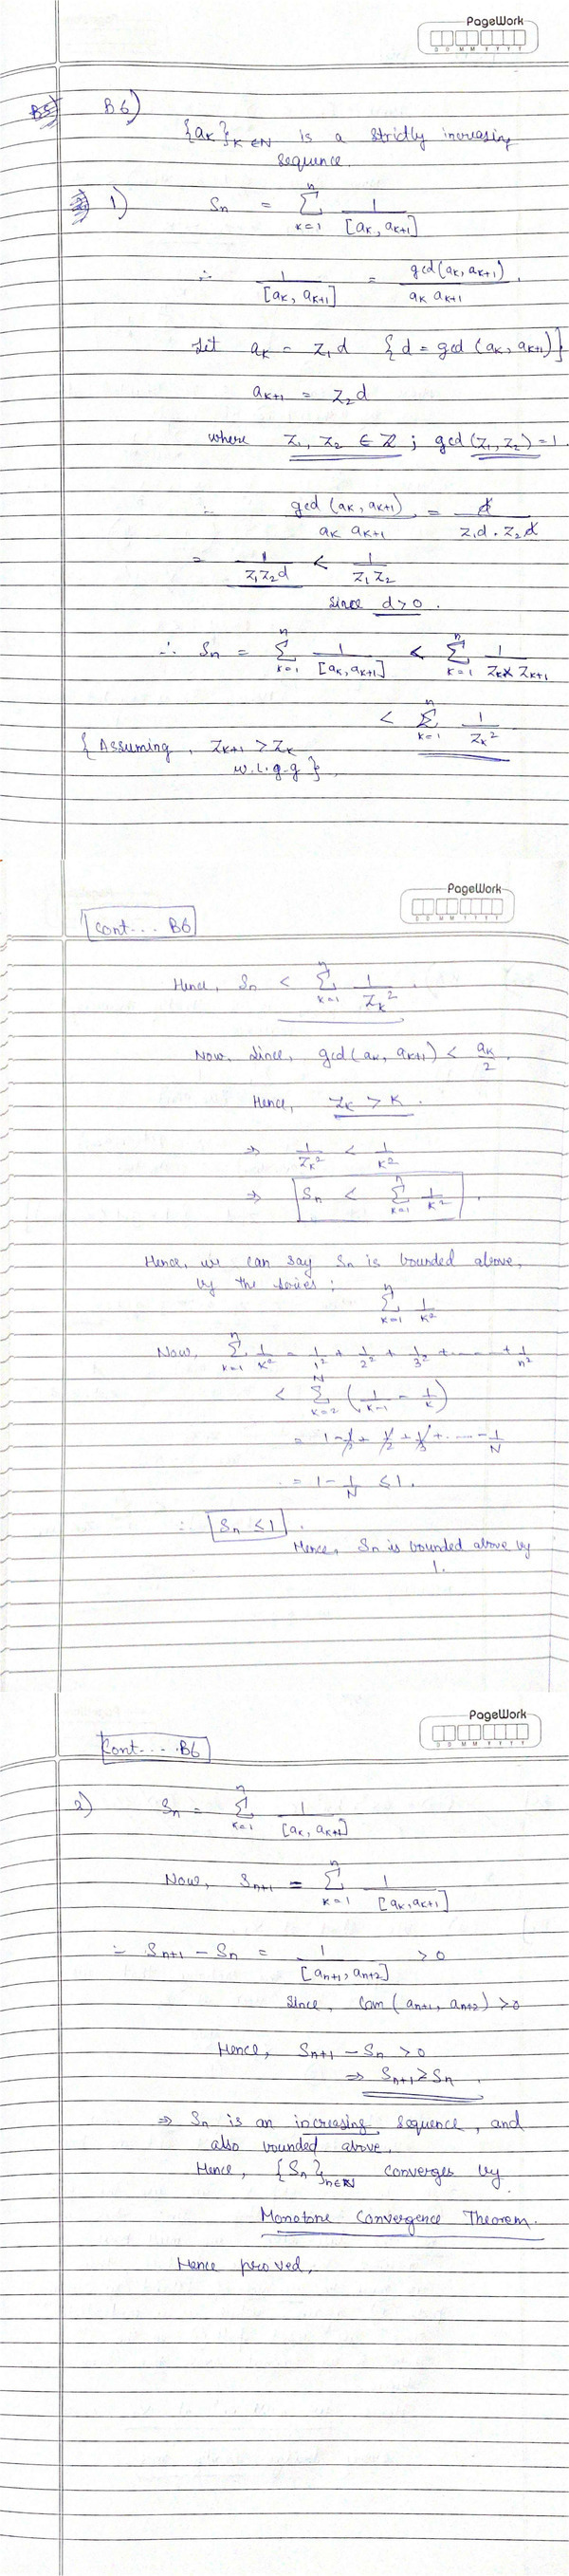 PageWork
D D M M Y Y Y Y
B6)
{a_k}_{k ∈ N} is a strictly increasing
sequence.
1) S_n = Σ_{k=1}^{n} 1/[a_k, a_{k+1}]
∴ 1/[a_k, a_{k+1}] = gcd(a_k, a_{k+1})/(a_k a_{k+1}).
Let a_k = z_1 d {d = gcd (a_k, a_{k+1})}
a_{k+1} = z_2 d
where z_1, z_2 ∈ Z ; gcd (z_1, z_2) = 1.
∴ gcd (a_k, a_{k+1})/(a_k a_{k+1}) = d/(z_1 d . z_2 d)
= 1/(z_1 z_2 d) < 1/(z_1 z_2)
since d > 0.
∴ S_n = Σ_{k=1}^{n} 1/[a_k, a_{k+1}] < Σ_{k=1}^{n} 1/(z_k × z_{k+1})
< Σ_{k=1}^{n} 1/z_k^2
{ Assuming, z_{k+1} > z_k
w.l.g.g }.
PageWork
D D M M Y Y Y Y
Cont... B6
Hence, S_n < Σ_{k=1}^{n} 1/z_k^2.
Now, since, gcd(a_k, a_{k+1}) < a_k/2.
Hence, z_k > k.
⇒ 1/z_k^2 < 1/k^2
⇒ S_n < Σ_{k=1}^{n} 1/k^2.
Hence, we can say S_n is bounded above,
by the series :
Σ_{k=1}^{n} 1/k^2
Now, Σ_{k=1}^{n} 1/k^2 = 1/1^2 + 1/2^2 + 1/3^2 + ..... + 1/n^2
< Σ_{k=2}^{N} (1/(k-1) - 1/k)
= 1 - 1/2 + 1/2 + 1/3 + .... - 1/N
= 1 - 1/N ≤ 1.
∴ S_n ≤ 1.
Hence, S_n is bounded above by
1.
PageWork
D D M M Y Y Y Y
Cont... B6
2) S_n = Σ_{k=1}^{n} 1/[a_k, a_{k+1}]
Now, S_{n+1} = Σ_{k=1}^{n} 1/[a_k, a_{k+1}]
∴ S_{n+1} - S_n = 1/[a_{n+1}, a_{n+2}] > 0
Since, (a_{n+1}, a_{n+2}) > 0
Hence, S_{n+1} - S_n > 0
⇒ S_{n+1} ≥ S_n.
⇒ S_n is an increasing sequence, and
also bounded above.
Hence, {S_n}_{n∈N} converges by
Monotone Convergence Theorem.
Hence proved.